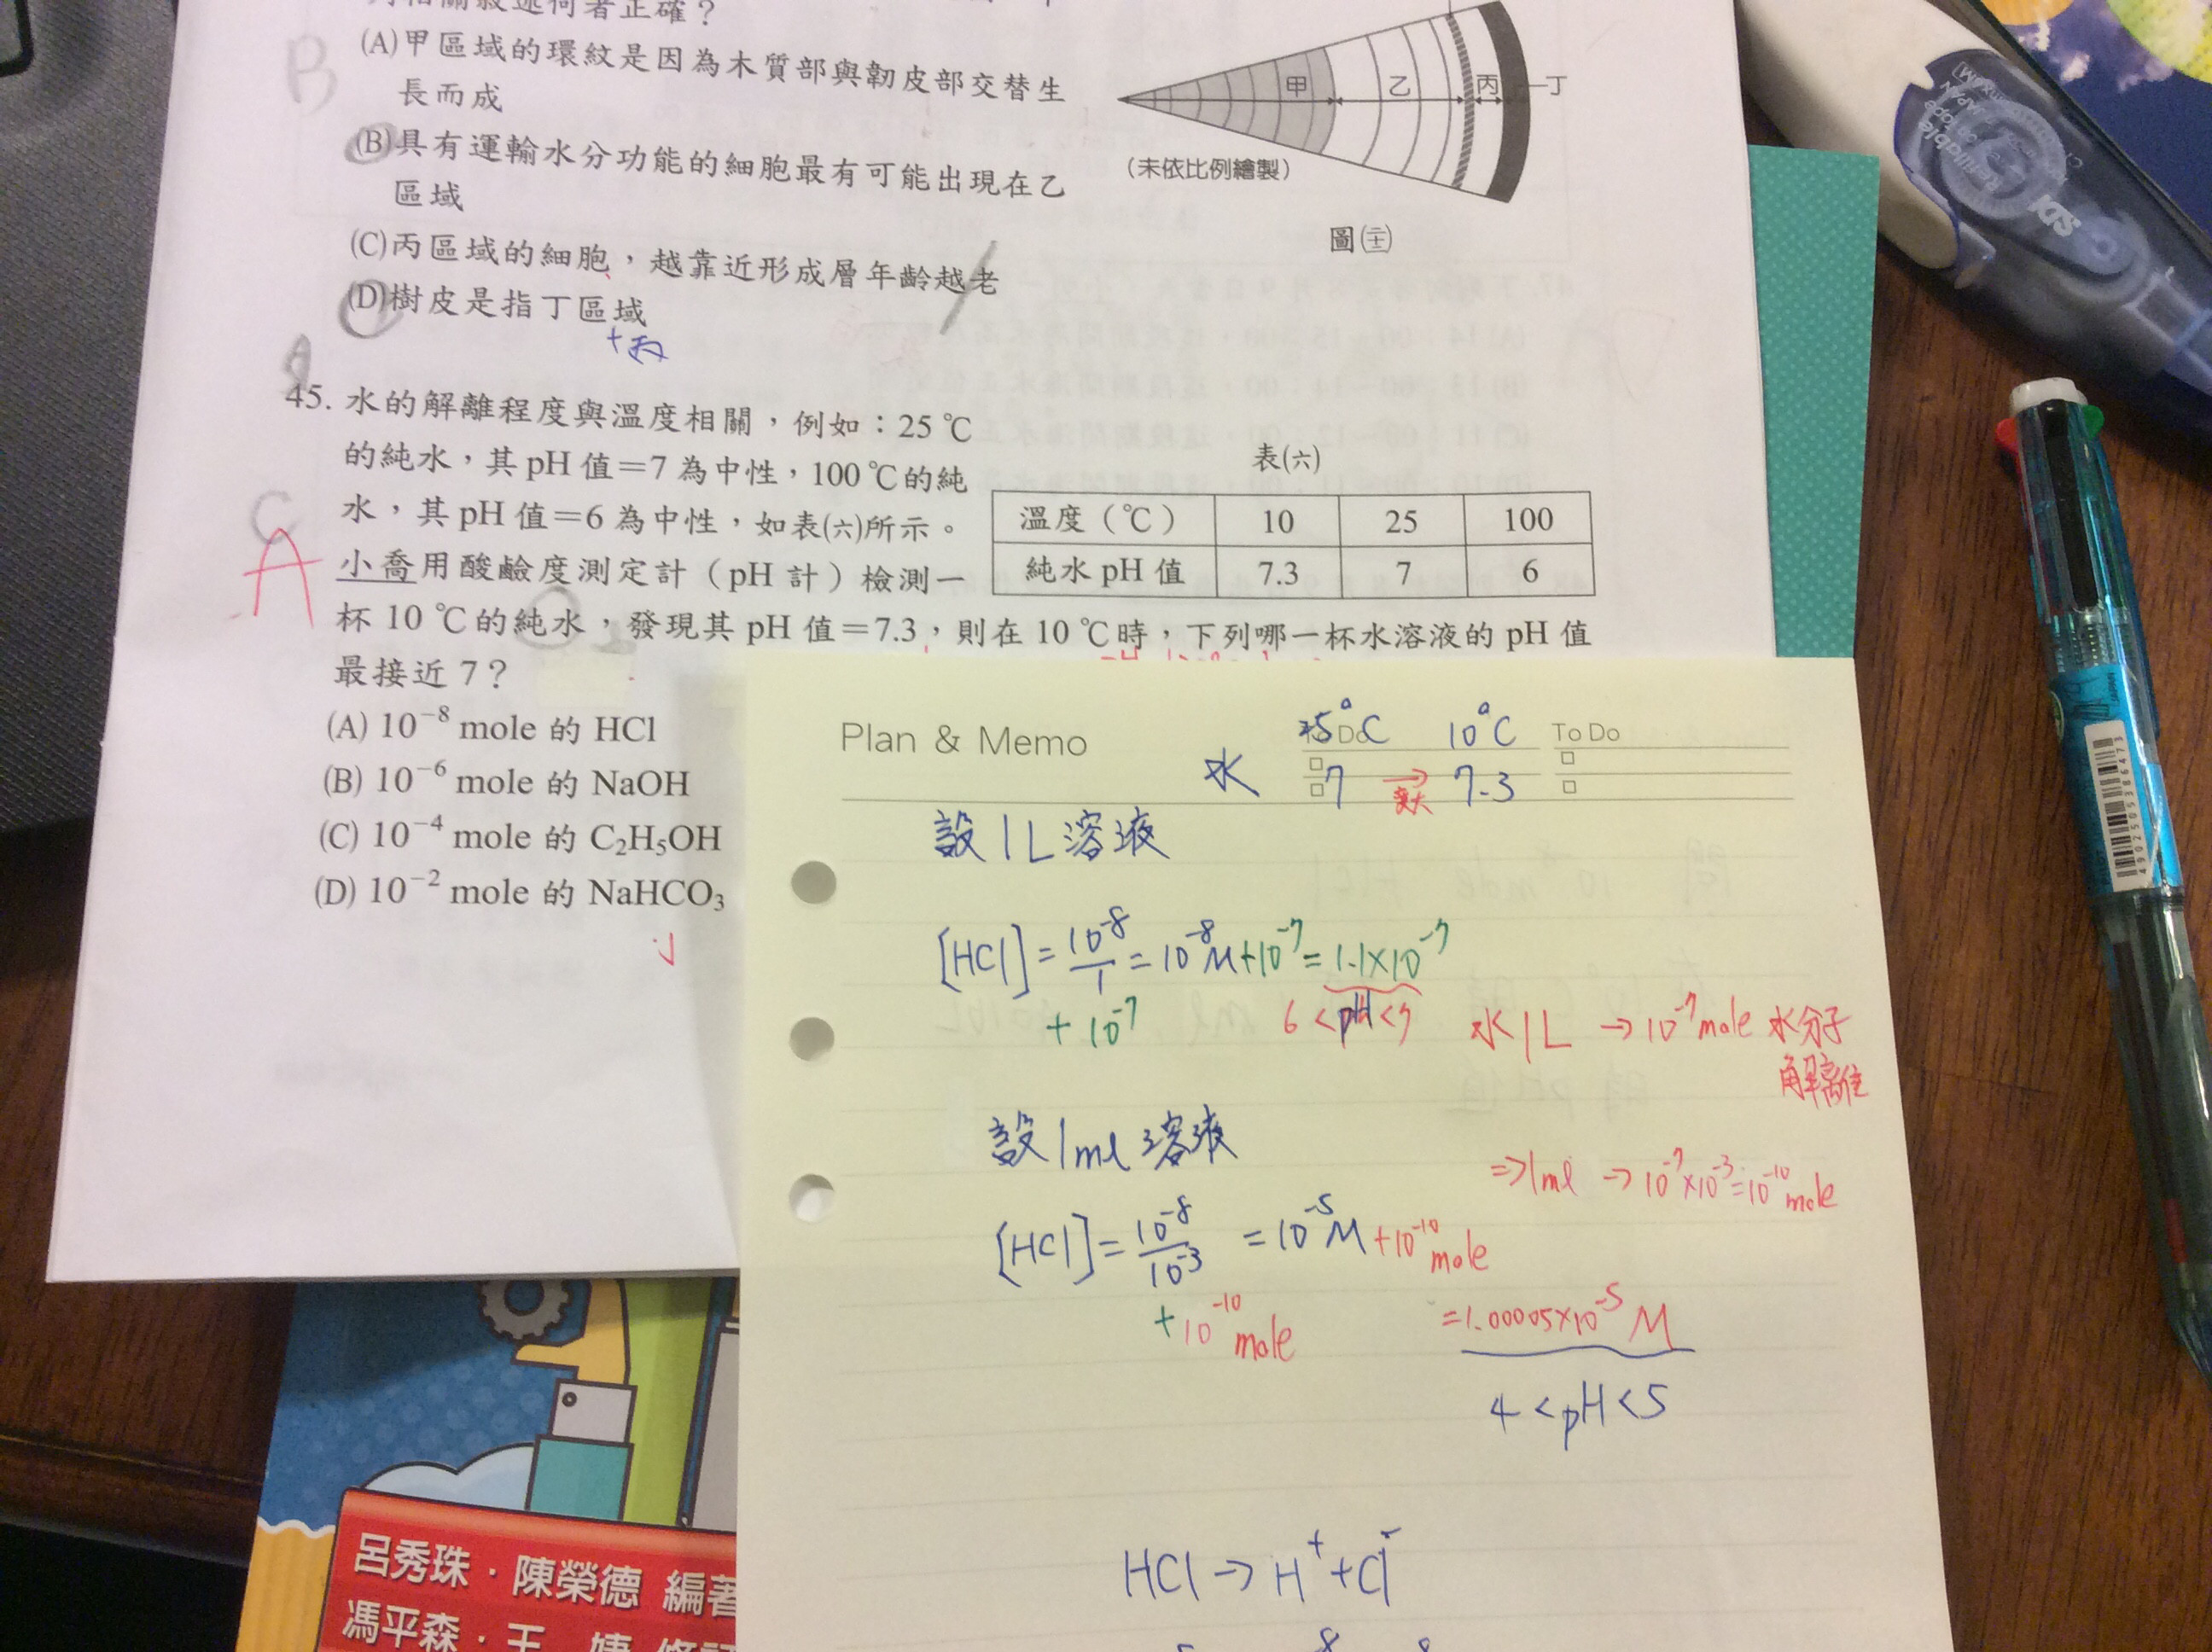 列相關敘述何者正確？
(A)甲區域的環紋是因為木質部與韌皮部交替生
長而成
(B)具有運輸水分功能的細胞最有可能出現在乙
區域
(C)丙區域的細胞，越靠近形成層年齡越老
(D)樹皮是指丁區域
+丙
B
甲
乙
丙
丁
(未依比例繪製)
45. 水的解離程度與溫度相關，例如：25 ℃
的純水，其 pH 值＝7 為中性，100 ℃的純
水，其 pH 值＝6 為中性，如表(六)所示。
小喬用酸鹼度測定計（pH 計）檢測一
杯 10 ℃的純水，發現其 pH 值＝7.3，則在 10 ℃時，下列哪一杯水溶液的 pH 值
最接近 7？
C
A
表(六)
溫度（℃） 10 25 100
純水 pH 值 7.3 7 6
(A) 10⁻⁸ mole 的 HCl
(B) 10⁻⁶ mole 的 NaOH
(C) 10⁻⁴ mole 的 C₂H₅OH
(D) 10⁻² mole 的 NaHCO₃
Plan & Memo
To Do
25°C 10°C
水 7 → 7.3
變大
設1L溶液
[HCl] = 10⁻⁸/1 = 10⁻⁸M + 10⁻⁷ = 1.1×10⁻⁷
+ 10⁻⁷
6<pH<7
水1L → 10⁻⁷mole 水分子
解離
設1ml溶液
⇒1ml → 10⁻⁷×10⁻³=10⁻¹⁰mole
[HCl] = 10⁻⁸/10⁻³ = 10⁻⁵M +10⁻¹⁰mole
+10⁻¹⁰mole
=1.00005×10⁻⁵ M
4<pH<5
HCl → H⁺+Cl⁻
呂秀珠・陳榮德 編著
SDI
4902505386473